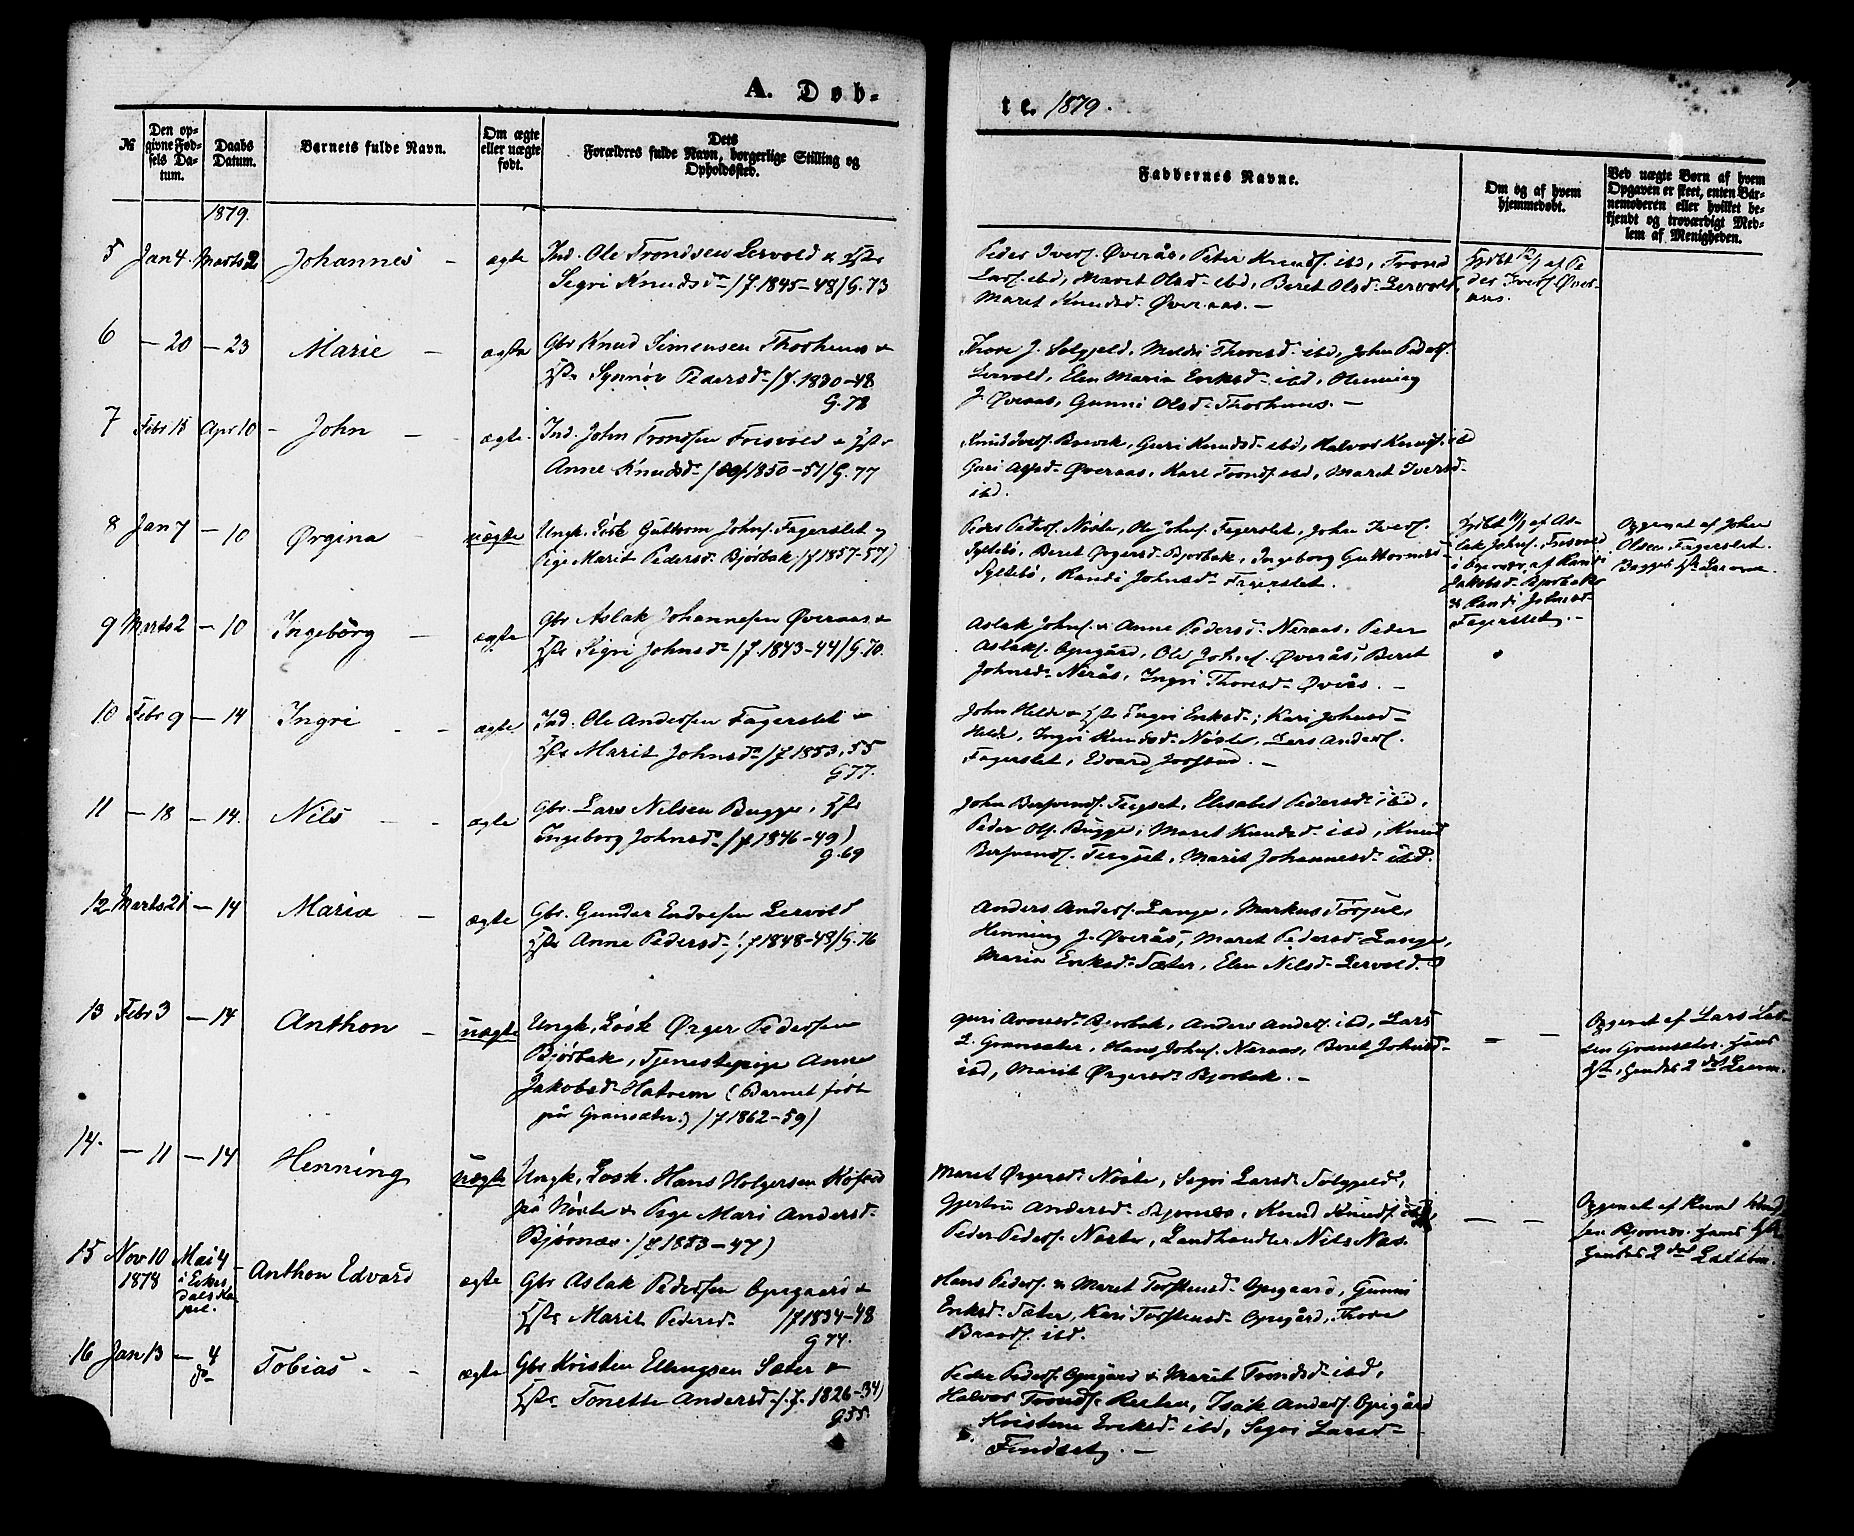 A. Døb-
te. 1879.
№
Den op-
givne Fød-
sels Da-
tum.
Daabs
Datum.
Barnets fulde Navn.
Om ægte
eller uægte
født.
Dets
Forældres fulde Navn, borgerlige Stilling og
Opholdssted.
Faddernes Navne.
Om og af hvem
hjemmedøbt.
Ved uægte Børn af hvem
Opgaven er skeet, enten Bar-
nemoderen eller hvilket be-
kjendt og troværdigt Med-
lem af Menigheden.
1879.
5 Jan 4. Marts 2 Johannes - ægte Ind. Ole Trondsen Lervold &
Segri Knudsdr /f. 1845-48/ G. 73
Peder Ivers. Øverås, Peter Knuds. ibd, Trond
Lars. ibd, Maret Olsd. ibd, Beret Olsd. Lervold,
Maret Knudsd. Øveraas. -
af Pe
der Ivers. Øver-
aas.
6 - 20 - 23 Marie - ægte Gbr Knud Simensen Thorhuus &
Synnøv Pedersdr /f. 1830-48
G. 78
Thore J. Solgjeld, Thoresd. ibd, John Peders.
Lervold, Elen Maria Eriksd. ibd, Henning
J. Øveraas, Gunni Olsd. Thorhuus. -
7 Febr 15 Apr 10 - John - ægte. Ind. John Trondsen Frisvold &
Anne Knudsdr 1850-51/ G. 77
Knud Ivers. Guri Knudsd. ibd, Halvor Knuds. ibd
Guri Øveraas, Karl Tronds. ibd, Maret Iversd.
ibd.
8 Jan 7 - 10 Ørgina - uægte Ungk. Losk Guttorm Johns. Fagerslet og
Pige Marit Pedersd. Bjorbak /f 1857-57)
Peder Peders. Nøste, Ole Johns. Fagerslet, John Ivers.
Syltebø, Beret Ørgersd. Bjorbak, Ingeborg Guttormsd.
Syltebø, Randi Johnsd. Fagerslet.
af As-
lak Johns. Frisvold
af Randi
Jakobsd. Bjorbak
& Randi Johnsd.
Fagerslet. -
Opgivet af John
Olsen Fagerslet.
9 Marts 2 - 10 Ingebörg - ægte Gbr Aslak Johannesen Øveraas &
Sigri Johnsdr /f. 1843-44/ G. 70.
Aslak Johns. & Anne Pedersd. Neraas, Peder
Aslaks. Opigård, Ole Johns. Øverås, Beret
Johnsd. Nerås, Ingri Thoresd. Øverås. -
10 Febr 9 - 14 Ingri - - ægte Ind. Ole Andersen Fagerslet &
Marit Johnsdr /f 1853, 55
G 77.
John Helde & Ingri Eriksd., Kari Johnsd.
Helde, Ingri Knudsd. Nøste, Lars Anders.
Fagerslet, Edvard -
11 - 18 - 14. Nils - - ægte Gbr. Lars Nilsen Bugge,
Ingeborg Johnsdr /f 1846-49)
G. 69
John Elisabet Pedersd. ibd,
Peder Ols. Bugge, Maret Knudsd. ibd, Knud
Marit Johannesd. ibd.
12 Marts 21 - 14 Maria - ægte Gbr. Gunder Endresen Lervold
Anne Pedersd. /f 1848-48/ G. 76
Anders Anders. Lange, Markus
Henning J. Øverås, Maret Pedersd. Lange,
Maria Eriksd. Sæter, Elen Nilsd. Lervold.
13 Febr 3 - 14 Anthon - uægte Ungk, Losk Ørger Pedersen
Bjorbak, Tjenestepige Anne
Jakobsd. Hatrem (Barnet født
på Gransæter.) /f 1862-59)
Guri Bjorbak, Anders Anders. ibd, Lars
L. Gransæter, Hans Johns. Neraas, Beret Johnsd.
ibd, Marit Ørgersd. Bjorbak. -
- -
Opgivet af Lars Lar-
sen Gransæter. Hans
hendes 2det Leierm.
14. - 11 - 14 Henning uægte Ungk, Losk. Hans Holgersen
på Nøste & Pige Mari Andersd.
Bjørnås. /f 1853-47)
Maret Ørgersd. Nøste, Segri Larsd. Solgjeld,
Gjertru Andersd. Bjørnås, Knud Knuds. ibd,
Peder Peders. Nøste, Landhandler Nils Næs.
- -
Opgivet af Knud Knud-
sen Bjørnås. Hans
hendes 2det
15 Nov 10 Mai 4
1878 i Eikes-
dals Ka-
pel. - Anthon Edvard ægte Gbr Aslak Pedersen Opigaard &
Marit Pedersd. /f 1834-48
G 74.
Hans Peders. & Maret Torstensd. Opigaard, Gunni
Eriksd. Sæter, Kari Torstensd. Opigård, Thore
ibd.
16 Jan 13 - 4 Tobias - - ægte Gbr Kristen Ellingsen Sæter &
Tonette Andersd. /f. 1826-34)
G 55.
Peder Peders. Opigård & Marit Trondsd. ibd,
Halvor Tronds. Isak Anders. Opigård
Kristine Eriksd. ibd, Segri Larsd.
Findset. -